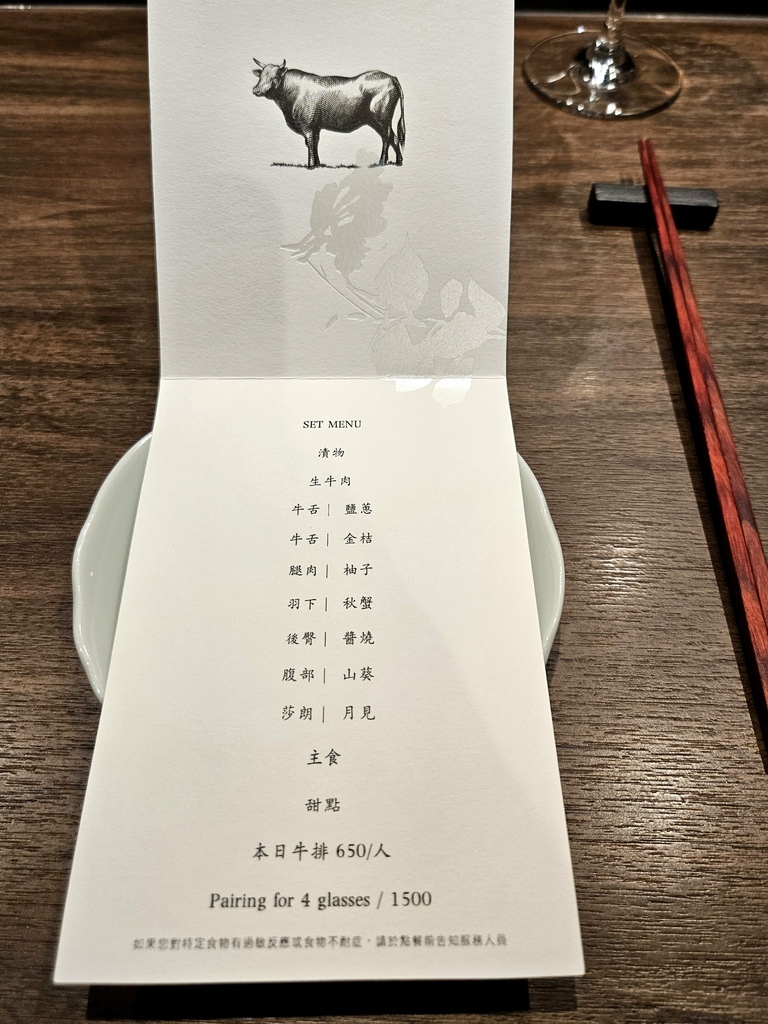 SET MENU
漬物
生牛肉
牛舌 | 鹽蔥
牛舌 | 金桔
腿肉 | 柚子
羽下 | 秋蟹
後臀 | 醬燒
腹部 | 山葵
莎朗 | 月見
主食
甜點
本日牛排 650/人
Pairing for 4 glasses / 1500
如果您對特定食物有過敏反應或食物不耐症，請於點餐前告知服務人員